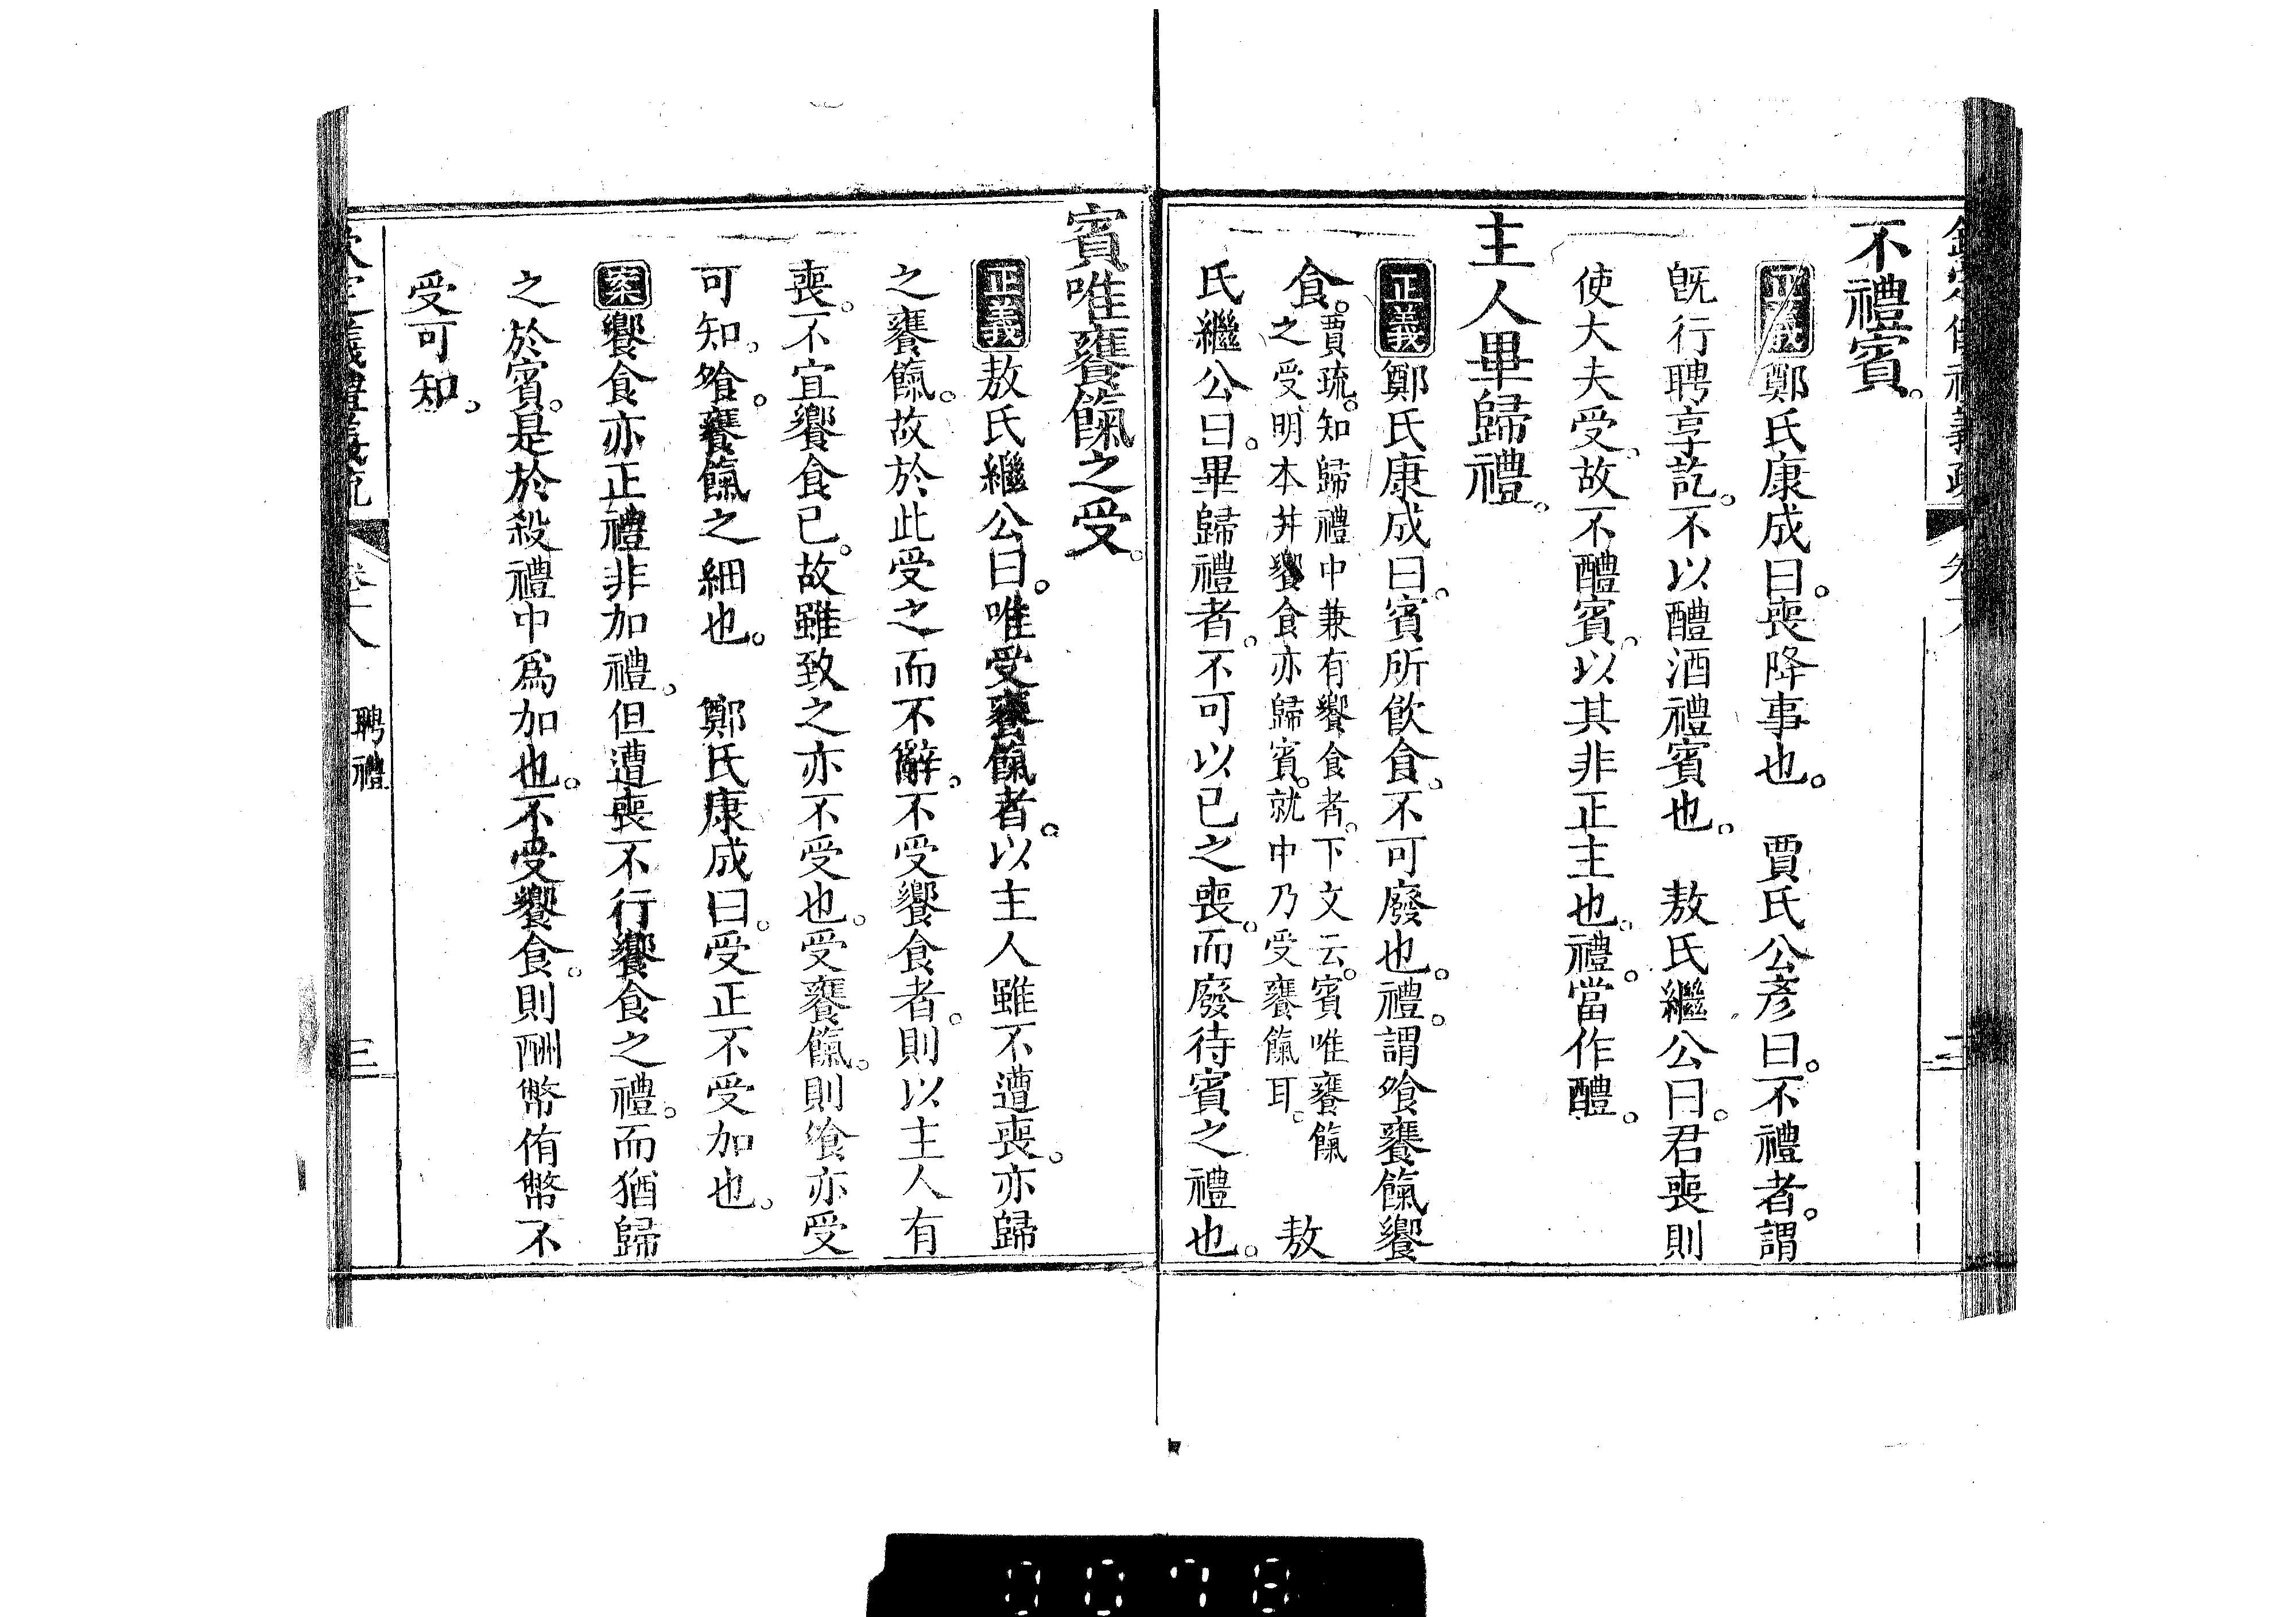 不禮賓。
正義鄭氏康成曰。喪降事也。　賈氏公彥曰。不禮者。謂
旣行聘享訖。不以醴酒禮賓也。　敖氏繼公曰。君喪則
使大夫受。故不醴賓。以其非正主也。禮。當作醴。
主人畢歸禮。
正義鄭氏康成曰。賓所飮食。不可廢也。禮。謂飧饔餼饗
食。賈疏。知歸禮中兼有饗食者。下文云。賓唯饔餼
之受。明本幷饗食亦歸賓。就中乃受饔餼耳。　敖
氏繼公曰。畢歸禮者。不可以已之喪。而廢待賓之禮也。
賓唯饔餼之受。
正義敖氏繼公曰。唯受饔餼者。以主人雖不遭喪。亦歸
之饔餼。故於此受之而不辭。不受饗食者。則以主人有
喪。不宜饗食已。故雖致之亦不受也。受饔餼。則飧亦受
可知。飧。饔餼之細也。　鄭氏康成曰。受正不受加也。
案饗食亦正禮非加禮。但遭喪不行饗食之禮。而猶歸
之於賓。是於殺禮中爲加也。不受饗食。則酬幣侑幣不
受可知。
聘禮
三
0078